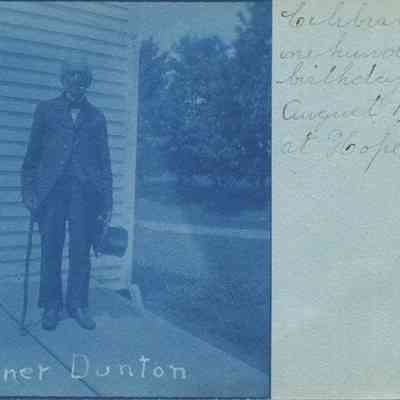 ner Dunton
Celebra
one hun
birthday
August 1
at Hope